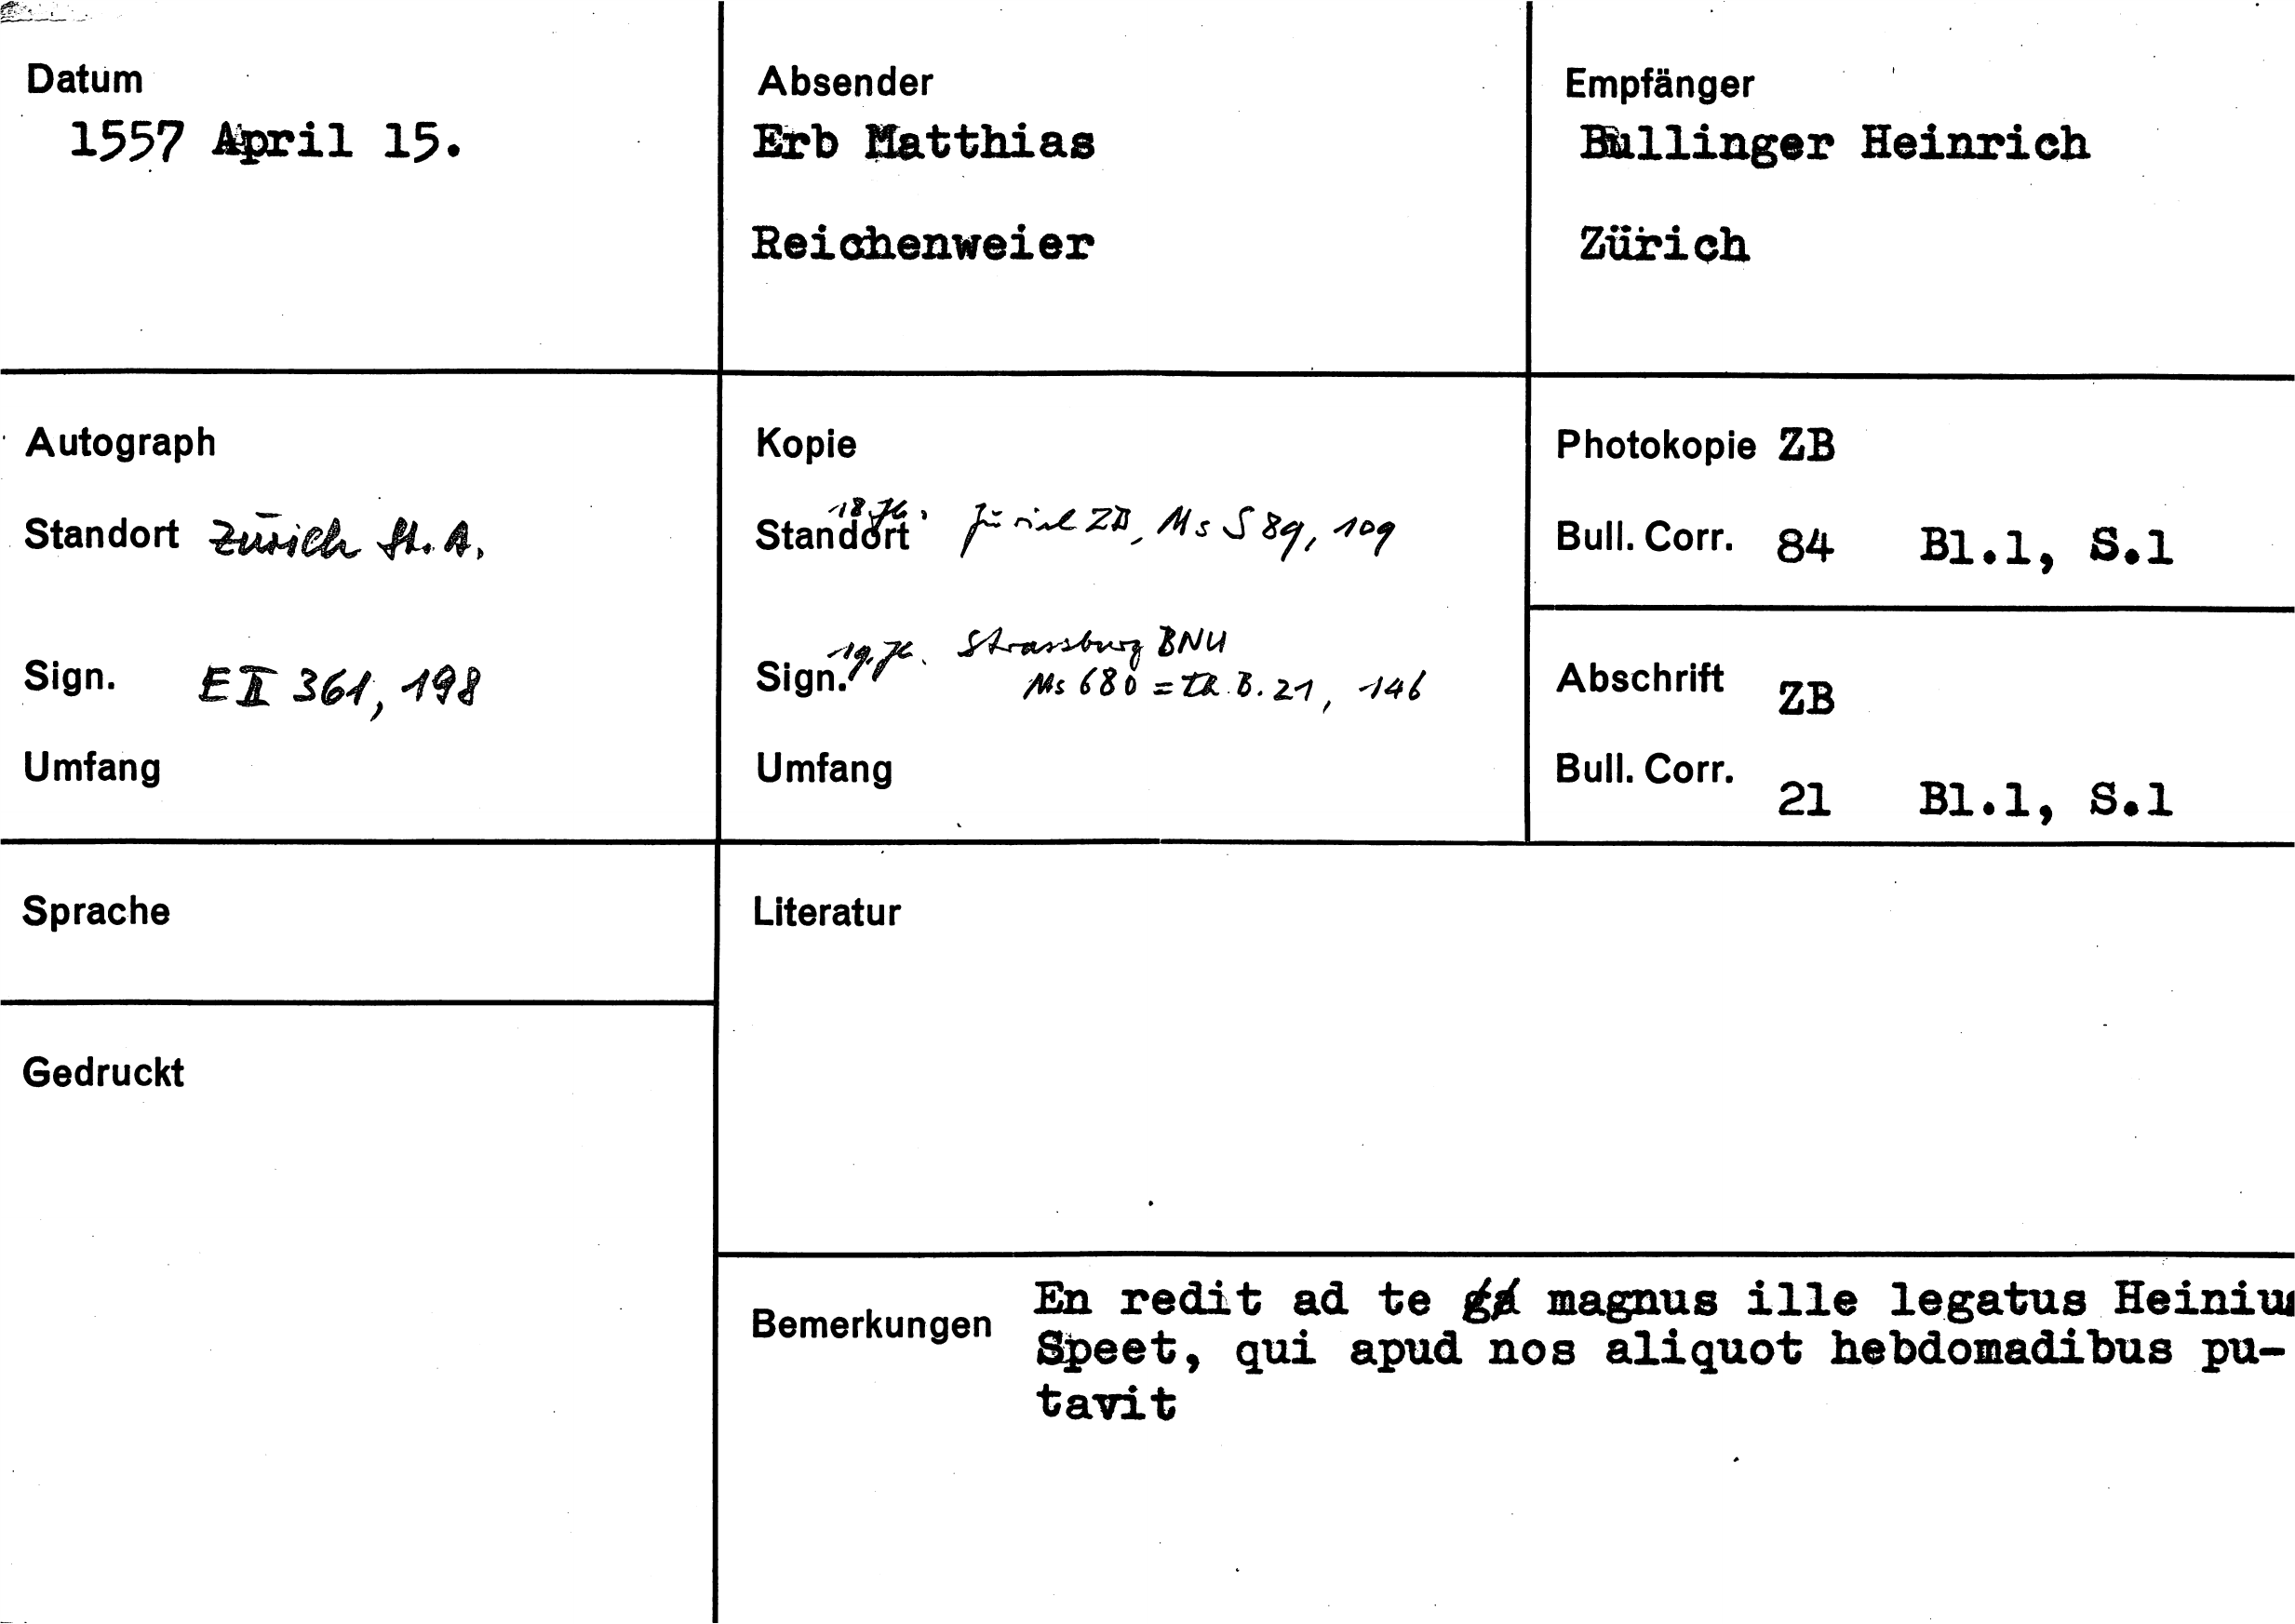 Datum
1557 April 15.
Absender
Erb Matthias
Reichenweier
Empfänger
Bullinger Heinrich
Zürich
Autograph
Standort Zürich St. A.
Sign. E II 361, 198
Umfang
Kopie
Standort 18. Jh. Zürich ZB, Ms S 89, 109
Sign. 19. Jh. Strassburg BNU
Ms 680 = Th. B. 21, 146
Umfang
Photokopie ZB
Bull. Corr. 84 Bl.1, S.1
Abschrift ZB
Bull. Corr. 21 Bl.1, S.1
Sprache
Gedruckt
Literatur
Bemerkungen
En redit ad te magnus ille legatus Heiniu
Speet, qui apud nos aliquot hebdomadibus pu-
tavit